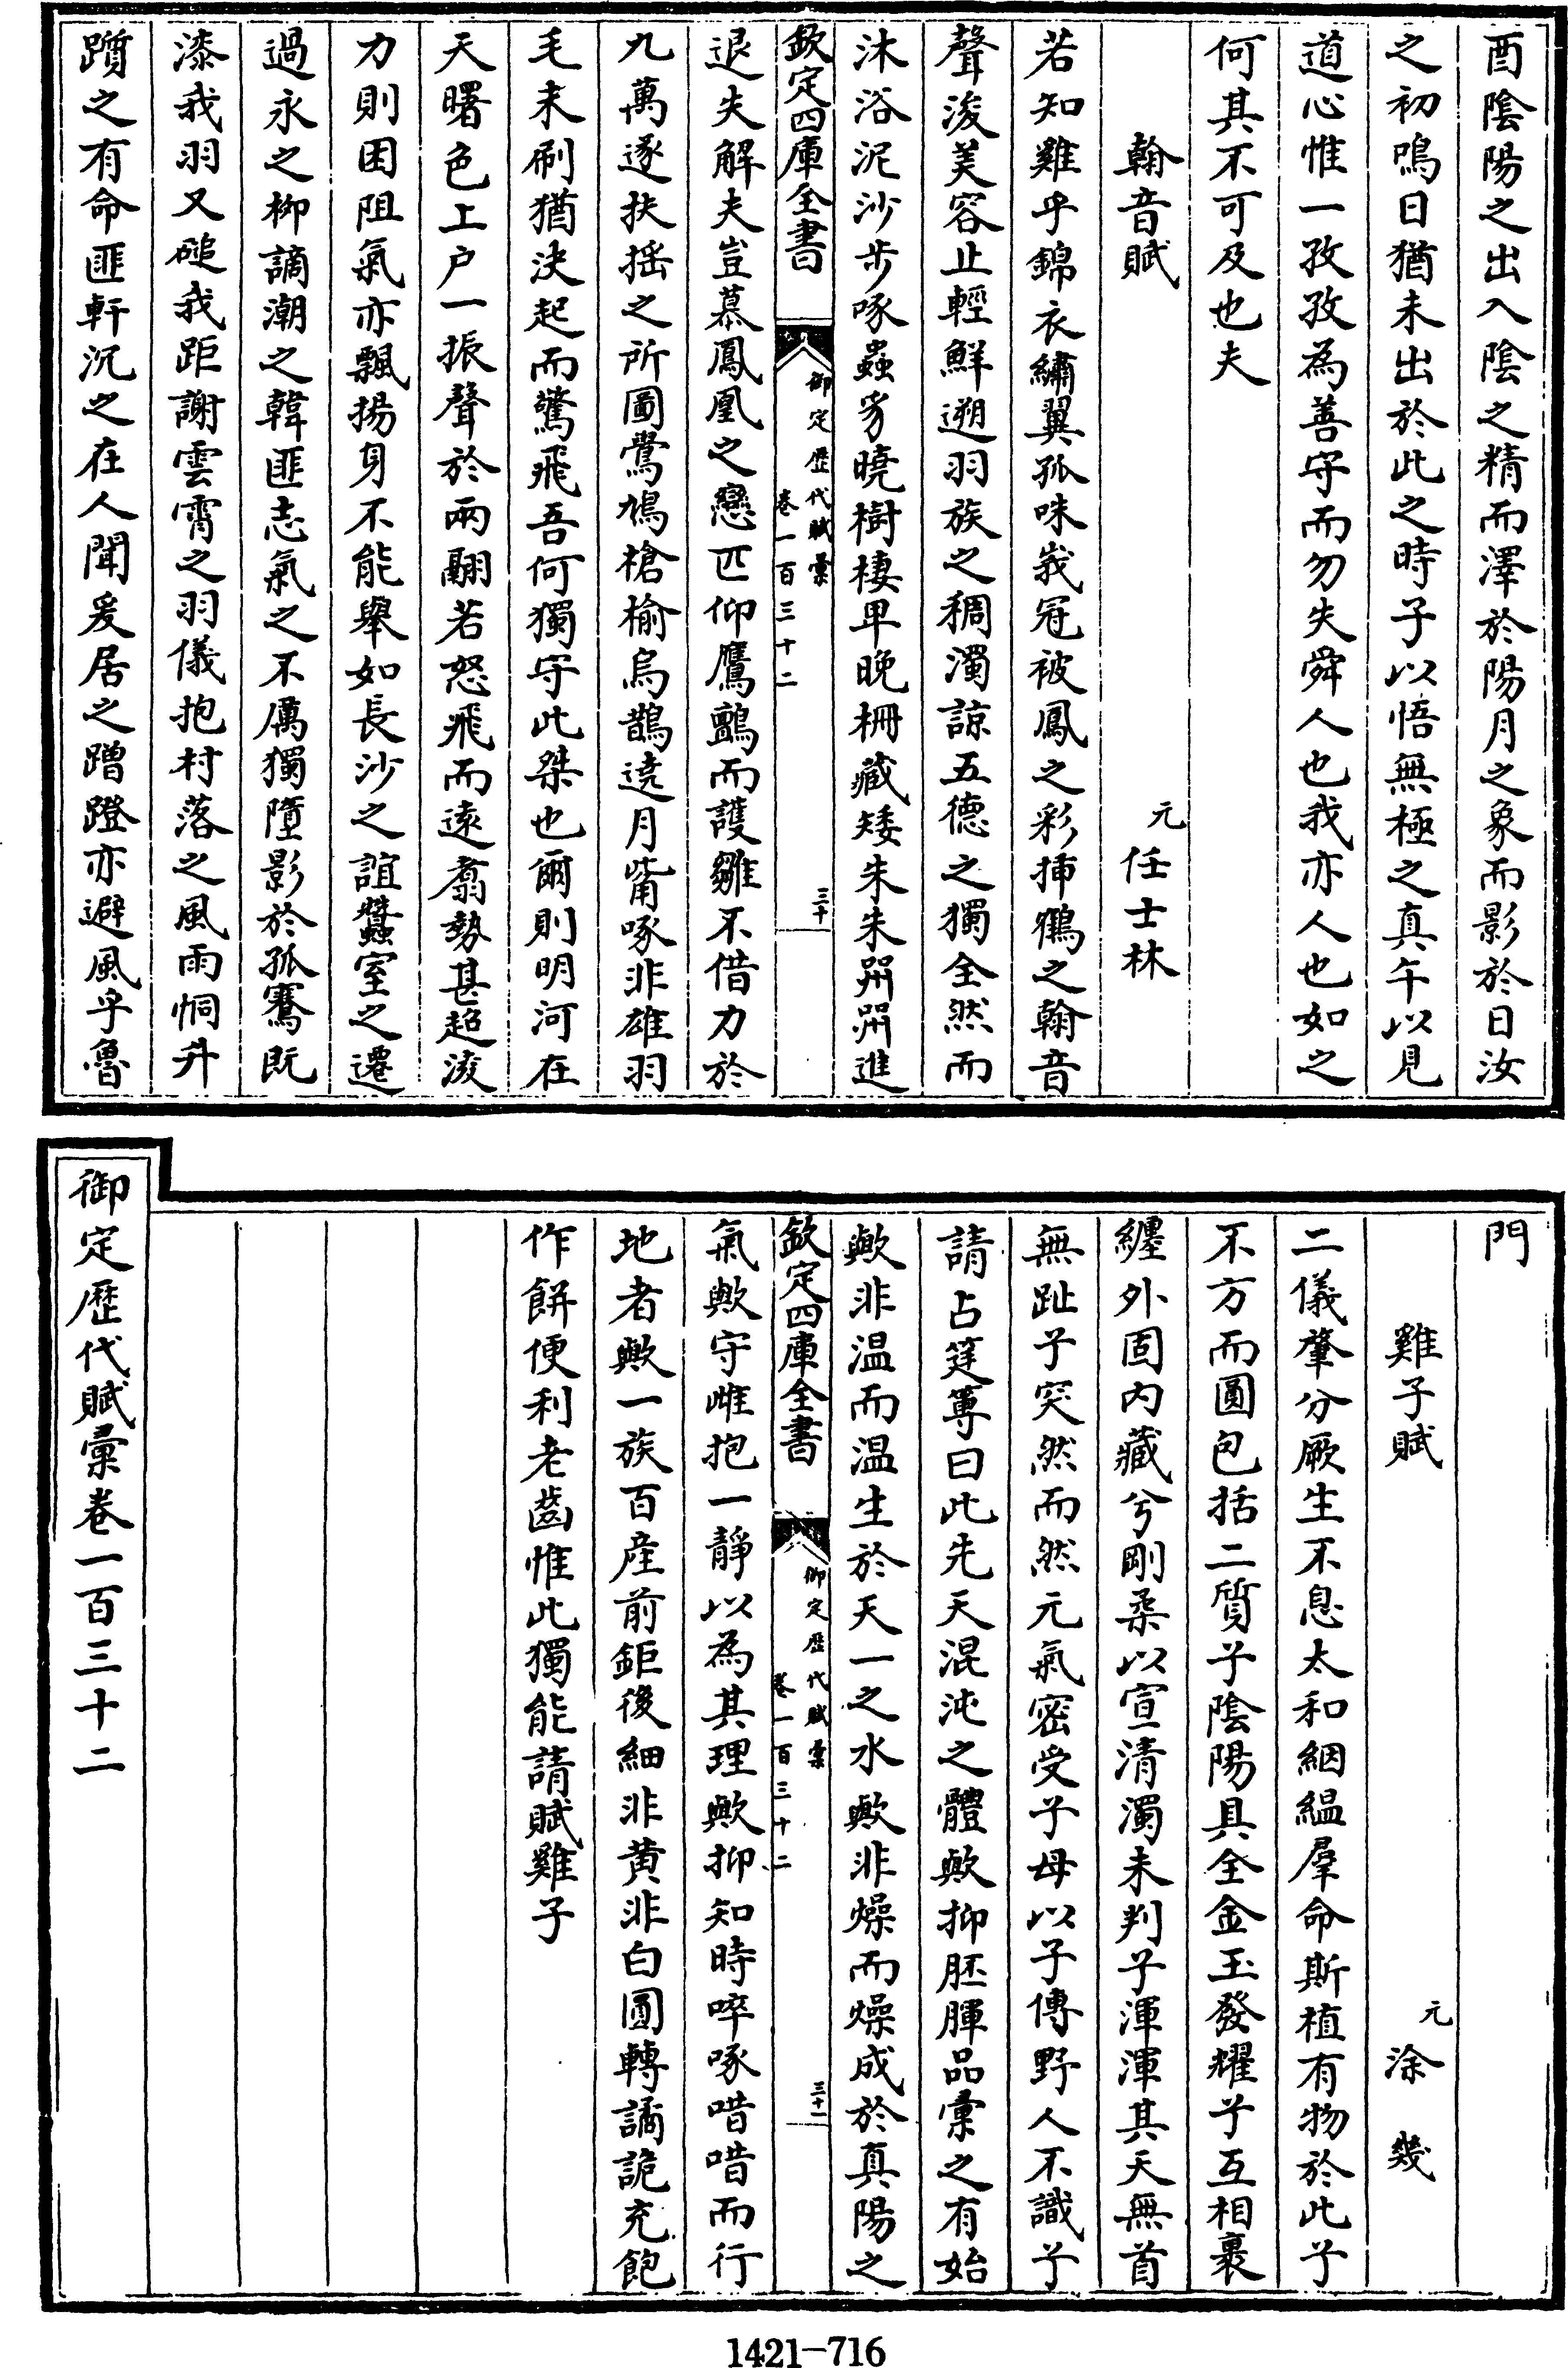 酉陰陽之出入陰之精而澤於陽月之象而影於日汝
之初鳴日猶未出於此之時子以悟無極之真午以見
道心惟一孜孜為善守而勿失舜人也我亦人也如之
何其不可及也夫
翰音賦　元任士林
若知雞乎錦衣繡翼孤咮峩冠被鳳之彩揷鶴之翰音
聲浚美容止輕鮮遡羽族之稠濁諒五德之獨全然而
沐浴泥沙步啄蟲豸曉樹棲卑晚柵藏矮朱朱喌喌進
欽定四庫全書
御定歷代賦彙
卷一百三十二
三十
退失解夫豈慕鳳凰之戀匹仰鷹鸇而護雛不借力於
九萬逐扶揺之所圖鷽鳩槍榆烏鵲遶月觜啄非雄羽
毛未刷猶決起而驚飛吾何獨守此桀也爾則明河在
天曙色上户一振聲於兩翮若怒飛而遠翥勢甚超浚
力則困阻氣亦飄揚身不能舉如長沙之誼蠶室之遷
過永之柳謫潮之韓匪志氣之不厲獨墮影於孤騫既
漆我羽又磓我距謝雲霄之羽儀抱村落之風雨恫升
躓之有命匪軒沉之在人聞爰居之蹭蹬亦避風乎魯
門
雞子賦　元涂幾
二儀肇分厥生不息太和絪緼羣命斯植有物於此予
不方而圓包括二質子陰陽具全金玉發耀予互相裹
纏外固内藏兮剛柔以宣清濁未判予渾渾其天無首
無趾予突然而然元氣密受予母以子傳野人不識予
請占筳篿曰此先天混沌之體歟抑胚腪品彙之有始
歟非温而温生於天一之水歟非燥而燥成於真陽之
欽定四庫全書
御定歷代賦彙
卷一百三十二
三十一
氣歟守雌抱一靜以為其理歟抑知時啐啄唶唶而行
地者歟一族百産前鉅後細非黄非白圓轉譎詭充飽
作餅便利老齒惟此獨能請賦雞子
御定歷代賦彙卷一百三十二
1421-716